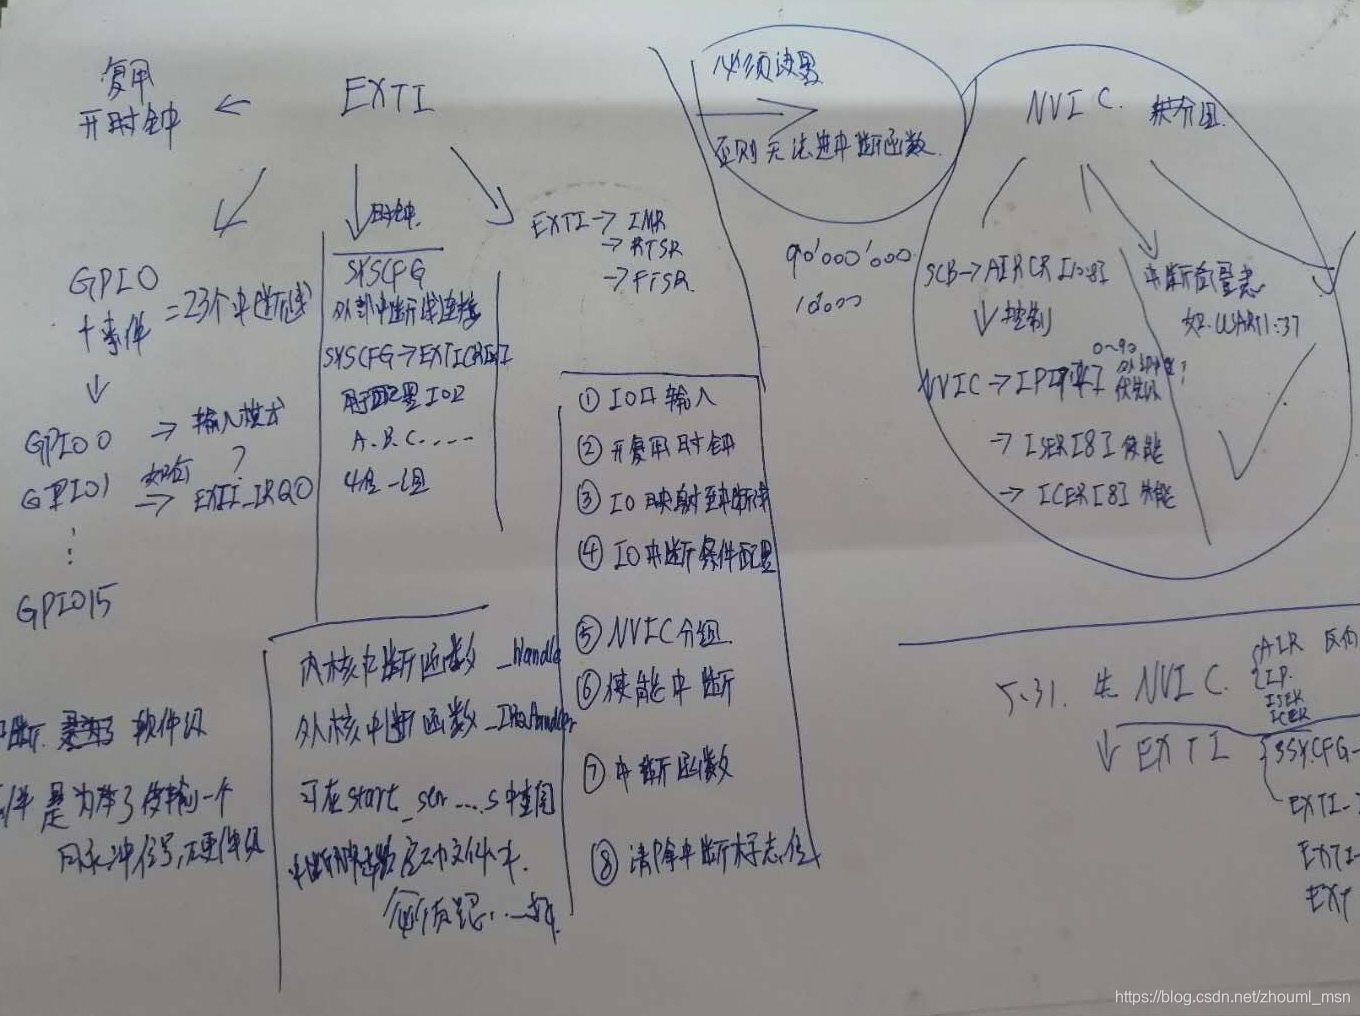 复用
开时钟
EXTI
GPIO
+事件
=23个中断线
GPIO0
GPIO1
GPIO15
输入模式
?
EXTI_IRQ0
时钟
SYSCFG
外部中断线连接
SYSCFG→EXTICR
用于配置IO口
A.B.C.....
4位一组
EXTI→IMR
→RTSR
→FTSR
必须设置
否则无法进中断函数
90'000'000
NVIC.
SCB→AIRCR[10:8]
控制
NVIC→IP
0~90
优先级
→ISER[8]使能
→ICER[8]失能
中断位置表
如.USART1:37
①IO口输入
②开复用时钟
③IO映射至中断线
④IO中断条件配置
⑤NVIC分组
⑥使能中断
⑦中断函数
⑧清除中断标志位
内核中断函数_Handle
外核中断函数_IRQHandler
可在start_ ....s中查阅
软件级
是为了传输一个
脉冲信号,硬件级
5.31. 先NVIC.
AIR
IP.
ISER
ICER
↓EXTI
SYSCFG-
EXTI-
EXTI-
EXT
https://blog.csdn.net/zhouml_msn